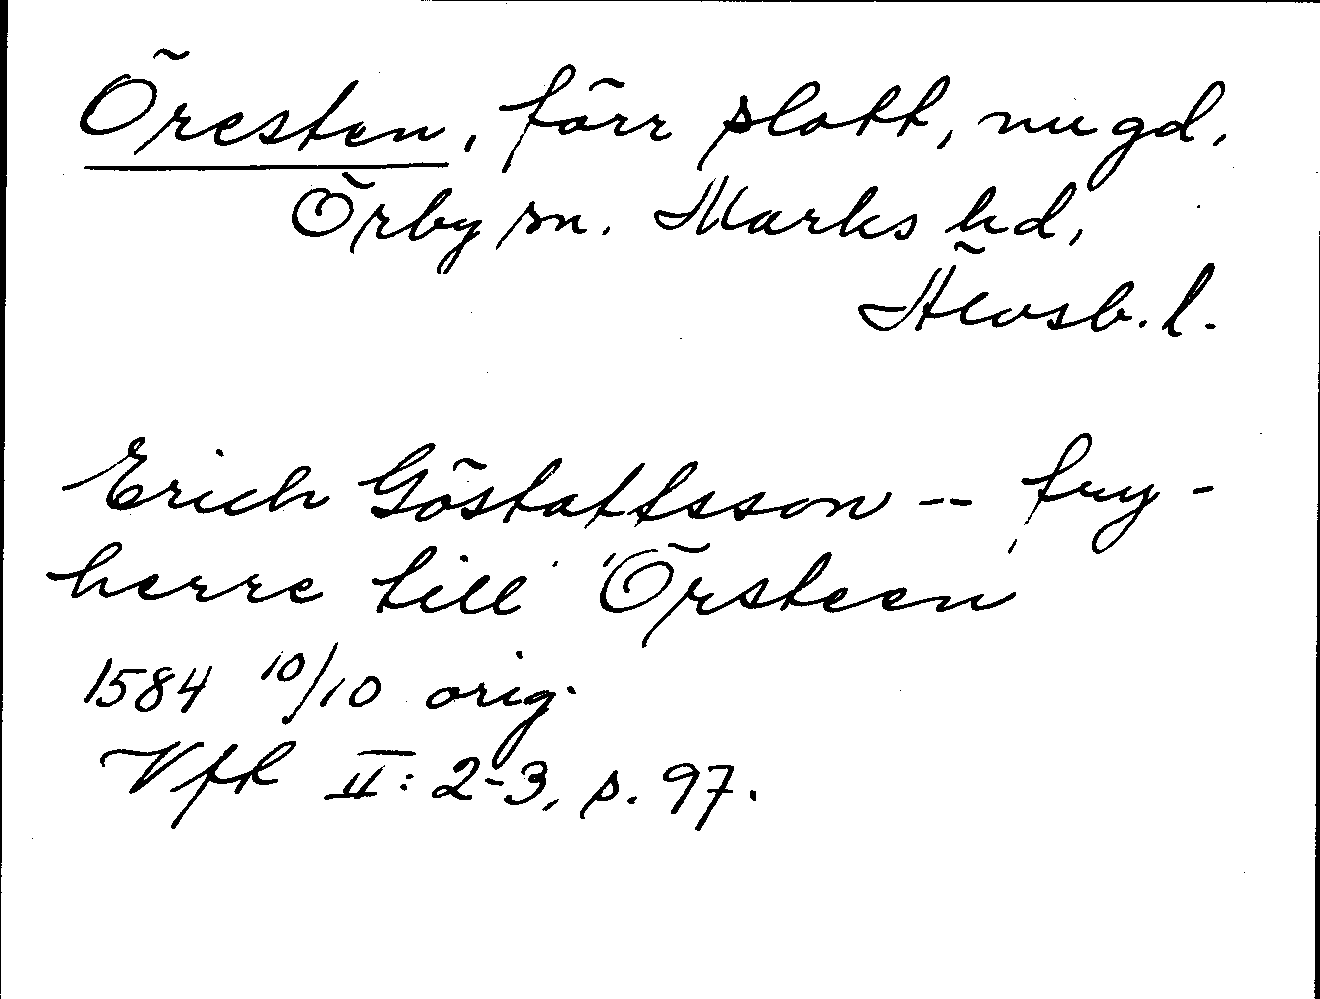 Öresten, förr slott, nu gd,
Örby sn. Marks hd,
Älvsb. l.
Erich Göstaffsson -- fry-
herre till Örsteen
1584 10/10 orig.
Vfk II: 2-3, p. 97.